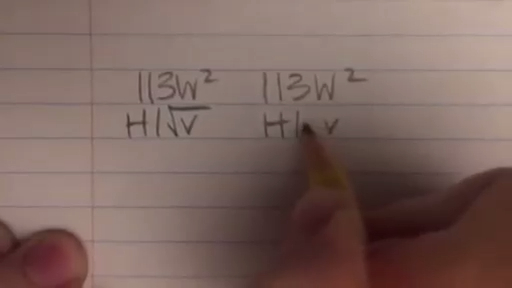 113W² 113W²
H1√V H1 V